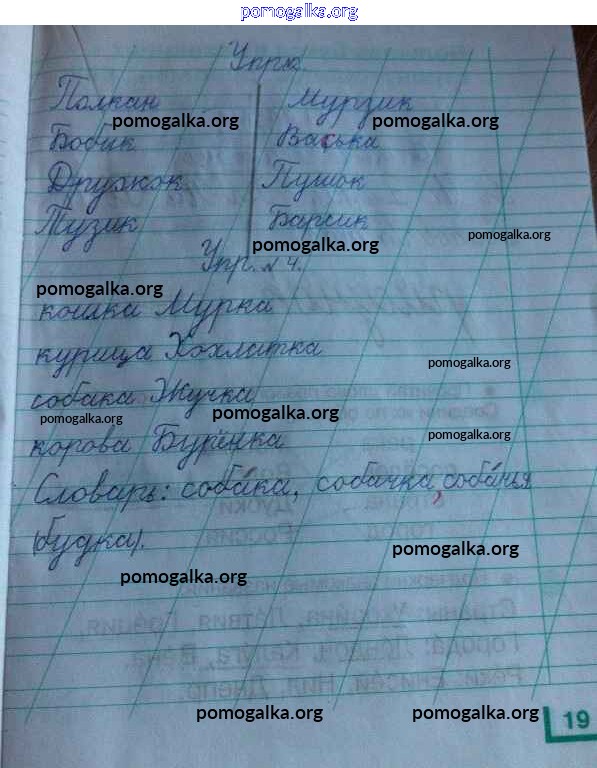 pomogalka.org
Упр.
Полкан Мурзик
pomogalka.org pomogalka.org
Бобик Васька
Дружок Пушок
Тузик Барсик
pomogalka.org
pomogalka.org
Упр. № 4.
pomogalka.org
кошка Мурка
курица Хохлатка
pomogalka.org
собака Жучка
pomogalka.org pomogalka.org
корова Бурёнка
pomogalka.org
Словарь: собака, собачка, собачья
(будка).
pomogalka.org
pomogalka.org
Страны: Украина, Латвия, Греция.
Города: Калуга, Вена.
Реки: Енисей, Нил, Днепр.
pomogalka.org pomogalka.org
19